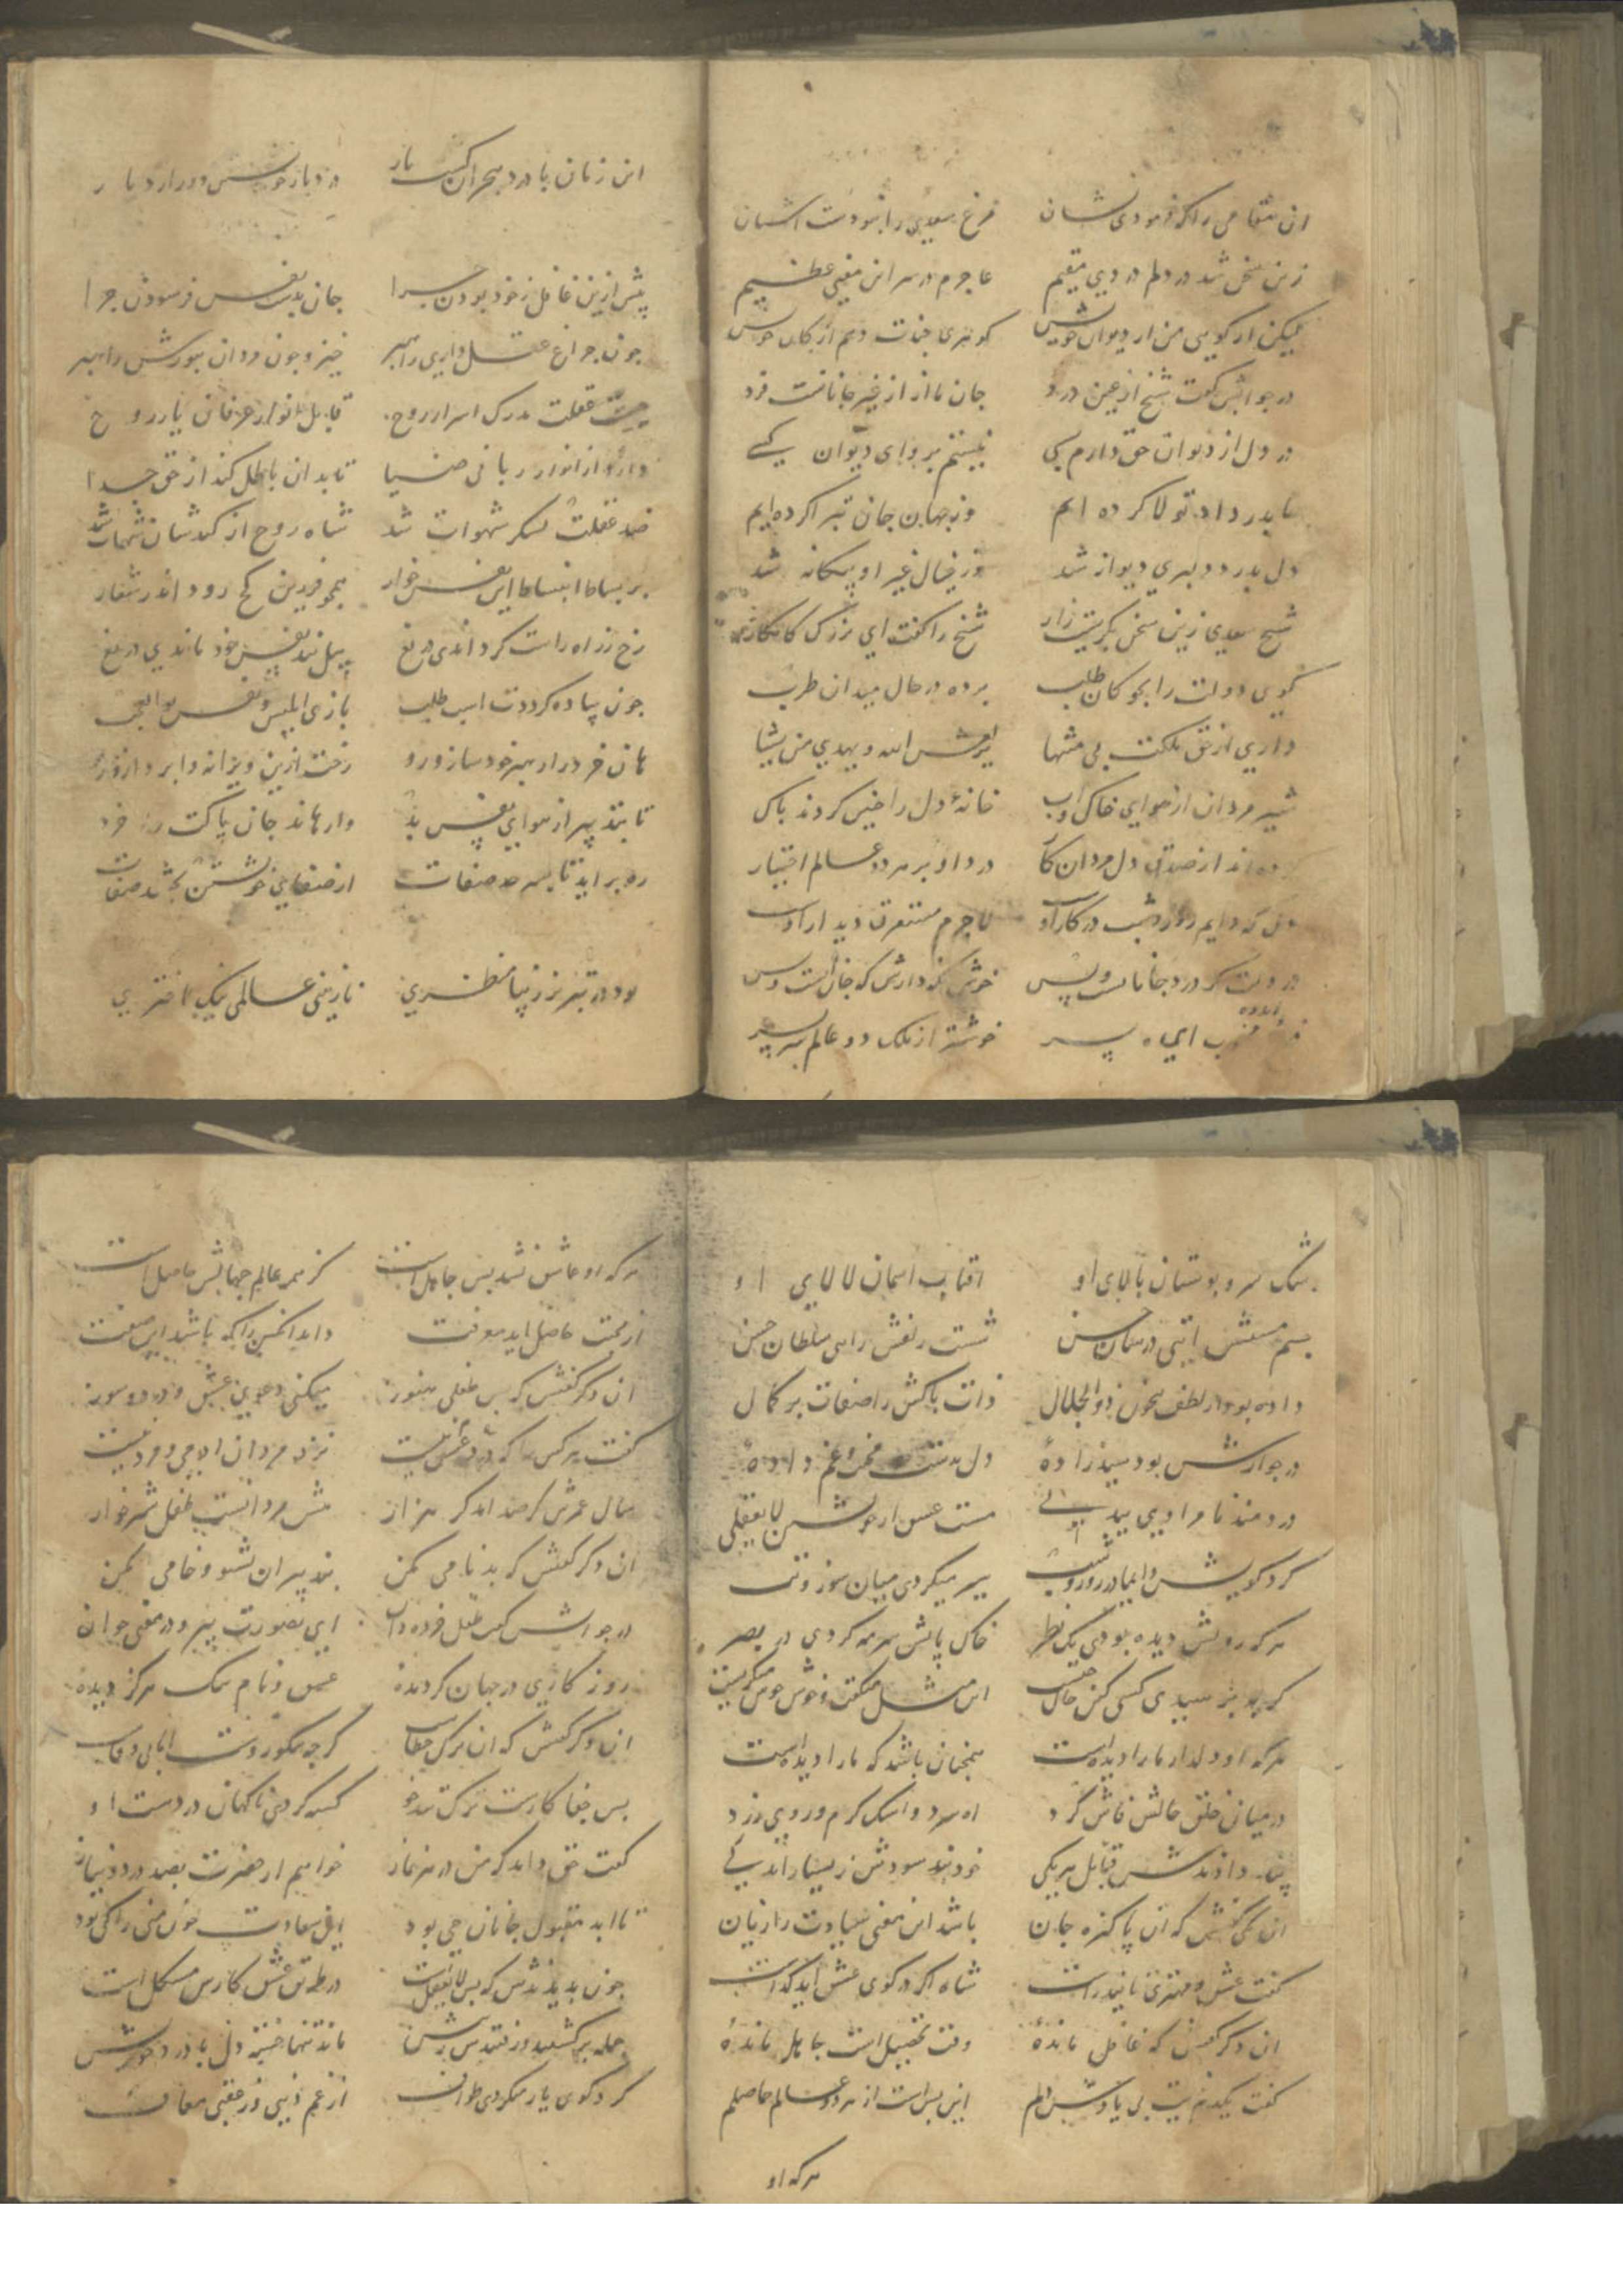 ان مقامی را که فرمودی نشان فرغ سعدی را نبودست اشیان
زین سخن شد در دلم دردی مقیم عاجزم در سر این معنی عظیم
لیکن ار کویی من از دیوان خویش کوهری چندت دهم از کان خویش
در جوابش کفت شیخ از عین درد جان ما از غیر جانانست فرد
در دل از دیوان حق دارم بسی نیستم پروای دیوان کسی
ما بدرد او تولا کرده ایم وز جهان جان تبرا کرده ایم
دل بدرد دلبری دیوانه شد وز خیال غیر او بیکانه شد
شیخ سعدی زین سخن بکریست زار شیخ را کفت ای بزرک کامکار
کوی دولت را بچوکان طلب برده در حال میدان طرب
داری از حق ملکت بی منتها الله و یهدی من یشا
شیر مردان از هوای خاک و اب خانهٔ دل را چنین کردند پاک
داده اند از صدق دل مردان کار درد او بر هر دو عالم اختیار
دل که دایم روز و شب در کار اوست لاجرم مستغرق دیدار اوست
در دلت کر درد جانانست و بس خوش نکه دارش که جان انست و بس
ای پسر خوشتر از ملک دو عالم سر بسر
این زمان با درد هجران کشت یار درد یار خویشتن
پیش ازین غافل ز خود بودن چرا جان بدست نفس فرسودن چرا
چون چراغ عقل داری راهبر خیز و چون مردان بنورش راه بر
چیست عقلت مدرک اسرار روح قابل انوار عرفان یار روح
دارد از انوار ربانی ضیا تا بدان باطل کند از حق جدا
ضد عقلت لشکر شهوات شد شاه روح از کیدشان شهمات شد
بر بساط انبساط این نفس خوار همچو فرزین کج رود اندر شعار
رخ ز راه راست کرداندی دریغ پیل بند نفس خود ماندی دریغ
چون پیاده کرددت اسب طلب بازی ابلیس و نفس بوالعجب
هان خرد را رهبر خود ساز و رو رخت ازین ویرانه وا پرداز و رو
تا بتدبیر از هوای نفس بد وارهاند جان پاکت را خرد
ره برآید تا بسر حد صفات از صفای خویشتن بخشد صفات
بود در تبریز زیبا منظری نازنین عالمی نیک اختری
رشک سرو بوستان بالای او افتاب اسمان لالای او
چشم مستش ایتی در شان حسن شست زلفش رای سلطان حسن
داده بود از لطف بیچون ذوالجلال ذات پاکش را صفات بر کمال
در جوارش بود سید زادهٔ دل بدست محنت و غم دادهٔ
دردمند نامرادی بیدلی مست عشق از خویشتن لا یعقلی
کرد کویش دایما در روز و شب سیر میکردی میان سوز و تب
هر که رویش دیده بودی یک نظر خاک پایش سرمه کردی در بصر
کر بپرسیدی کسی کین حال چیست این مثل میکفت و خوش خوش میکریست
هر که او دلدار ما را دیده است همچنان باشد که ما را دیده است
در میان خلق حالش فاش کرد اه سرد و اشک کرم و روی زرد
پند دادندش قبایل هر یکی خود نبد سودش ز بسیار اندکی
ان یکی کفتش که ان پاکیزه جان باشد این معنی سیادت را زیان
کفت عشق و مهتری ناید راست شاه اکر در کوی عشق اید کداست
ان دکر کفتش که غافل ماندهٔ وقت تحصیل است جاهل ماندهٔ
کفت یکدم نیست بی یادش دلم این بس است از هر دو عالم حاصلم
هر که او
هر که او عاشق نشد بس جاهل است کز همه عالم جهالش حاصل است
از محبت حاصل اید معرفت داند انکس را که باشد این صفت
ان دکر کفتش که بس طفلی هنوز میکنی دعوی عشق و درد و سوز
کفت هر کس را که درد عشق نیست نزد مردان ادمی و مرد نیست
سال عمرش کر صد اید کر هزار پیش مردانست طفل شیرخوار
ان دکر کفتش که بدنامی مکن پند پیران بشنو و خامی مکن
در جوابش کفت طفل خرده دان ای بصورت پیر و در معنی جوان
روزکاری در جهان کردیدهٔ عشق و نام نیک هرکز دیدهٔ
ان دکر کفتش که ان ترک خطا کرچه نیکو روست
بس جفا کارست ترک تندخو کشته کردی ناکهان در دست او
کفت حق داند که من در هر نماز خواهم از حضرت بصد درد و نیاز
تا ابد مقبول جانان جون من را کی بود
چون بدیدندش که بس لا یعقلست در طریق عشق کارش مشکل است
جمله برکشتند و رفتند از برش ماند تنها خسته دل با درد خویش
کرد کوی یار میکردی طواف از غم دنیی و از عقبی معاف